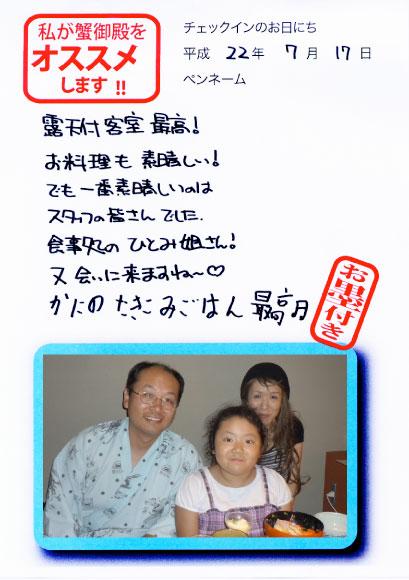 私が蟹御殿を
オススメ
します!!
チェックインのお日にち
平成 22年 7月 17日
ペンネーム
露天付客室 最高!
お料理も 素晴しい!
でも一番素晴しいのは
スタッフの皆さんでした.
食事処のひとみ姐さん!
又会いに来ますね〜♡
かにのたきこみごはん 最高
お墨付き